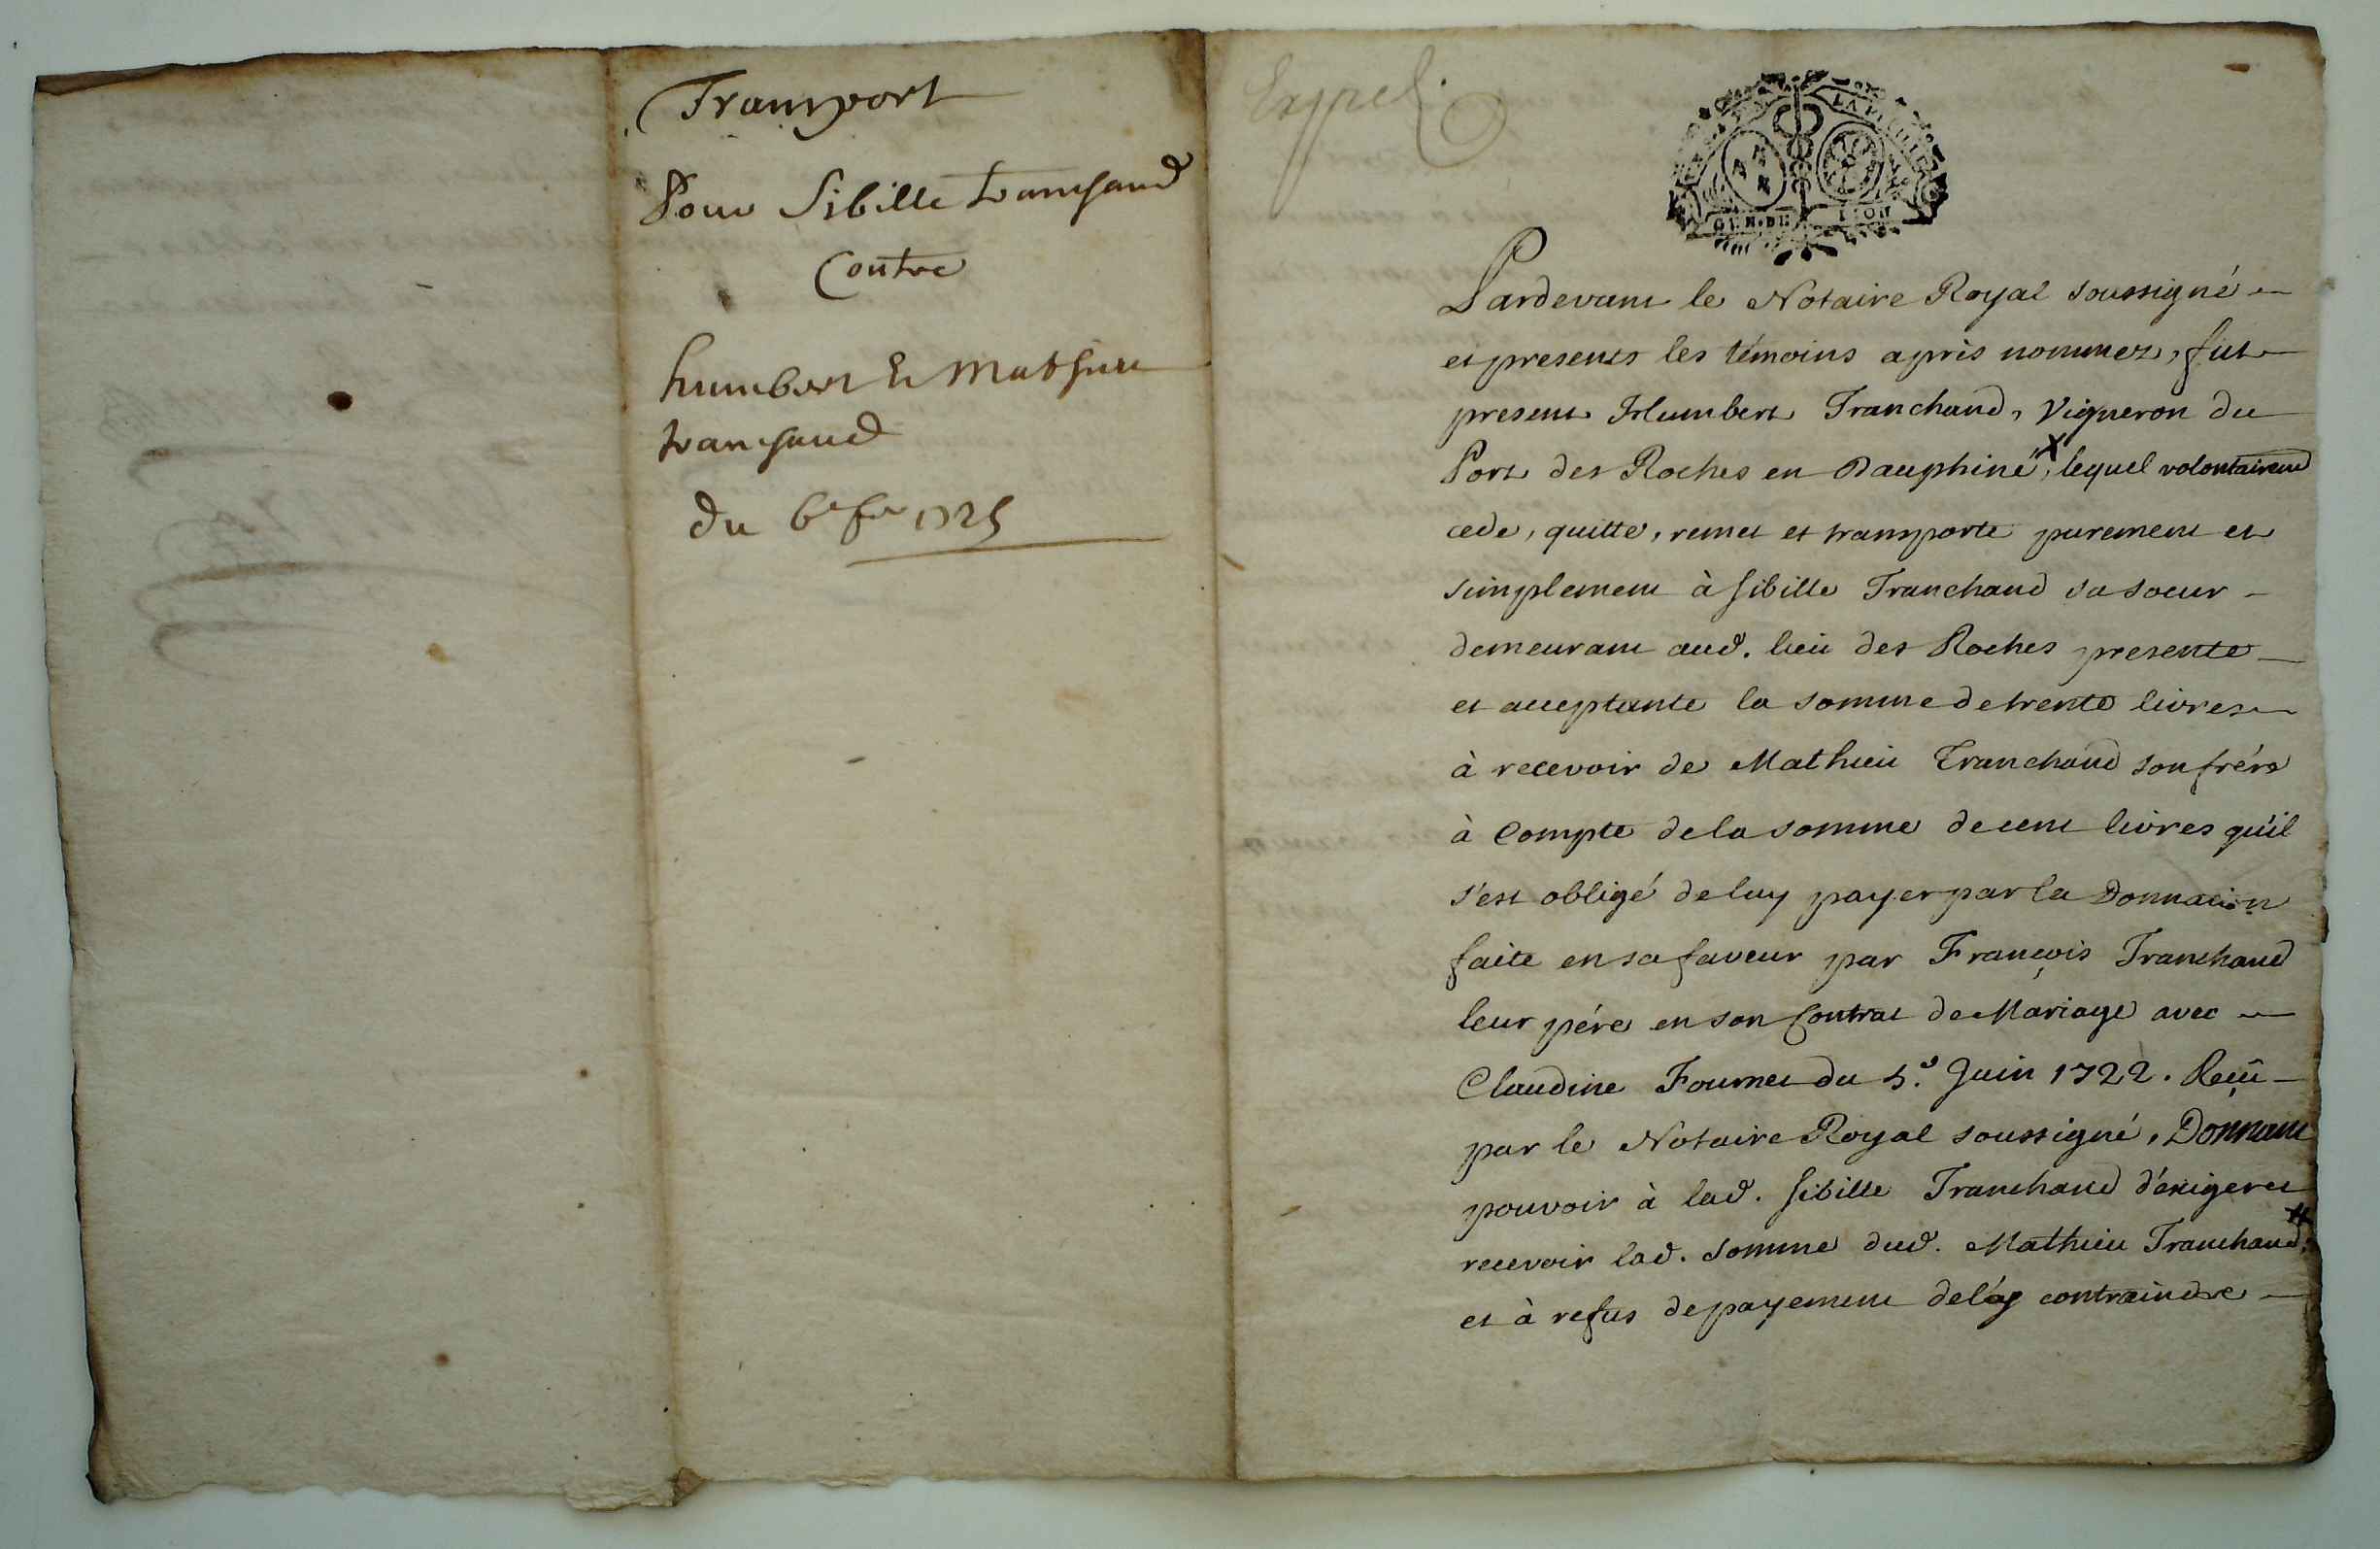 Transport
Pour Sibille tranchand
Contre
humbert & Mathieu
tranchand
du 6e fer 1725
Exped.
GEN. DE LION
Pardevant le Notaire Royal soussigné
et presents les témoins après nommez, fut
present Humbert Tranchand, Vigneron du
Port des Roches en Dauphiné, lequel volontairemt
cede, quitte, remet et transporte purement et
simplement à Sibille Tranchand sa soeur
demeurant aud. lieu des Roches presente
et acceptante la somme de trente livres
à recevoir de Mathieu Tranchand son frére
à Compte de la somme de cent livres qu'il
s'est obligé de luy payer par la Donnation
faite en sa faveur par François Tranchand
leur pére en son Contrat de Mariage avec
Claudine Fournet du 5.e Juin 1722. Reçû
par le Notaire Royal soussigné, Donnant
pouvoir à lad. Sibille Tranchand d'éxiger et
recevoir lad. somme dud. Mathieu Tranchand,
et à refus de payement de l'y contraindre